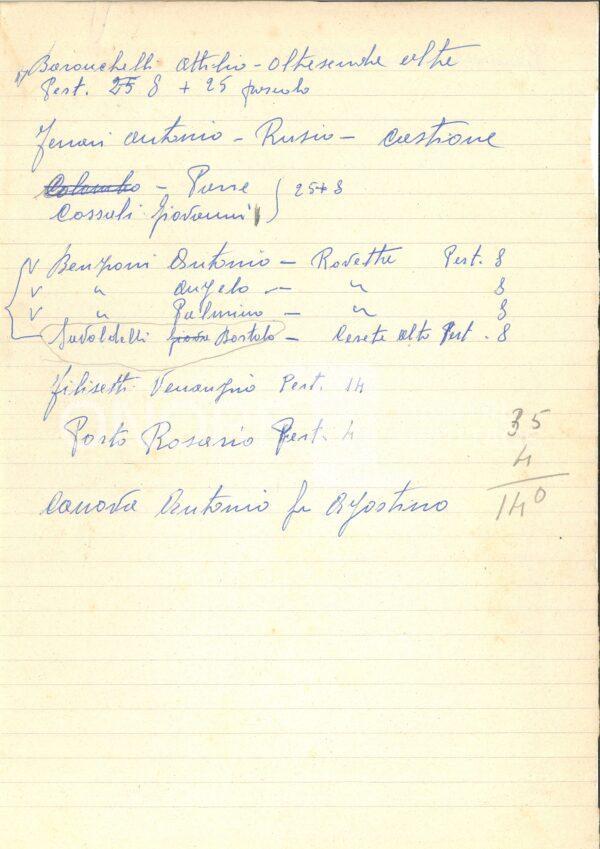 Baronchelli Attilio - Oltresenda alta
Pert. 25 8 + 25 pascolo
Ferrari Antonio - Rusio - Castione
Colombo - Parre } 25+8
Cossali Giovanni
v Benzoni Antonio - Rovetta Pert. 8
v " Angelo - " 8
v " Palmino - " 8
Savoldelli Bortolo - Cerete alto Pert. 8
Filisetti Venanzio Pert. 14
Porto Rosario Pert. 4
Canova Antonio fu Agostino
35
4
140